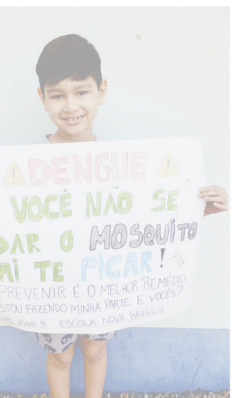 DENGUE
VOCÊ NÃO SE
DAR O MOSQUITO
TE PICAR!
PREVENIR É O MELHOR REMÉDIO
ESTOU FAZENDO MINHA PARTE E VOCÊS?
ESCOLA NOVA BRASÍLIA